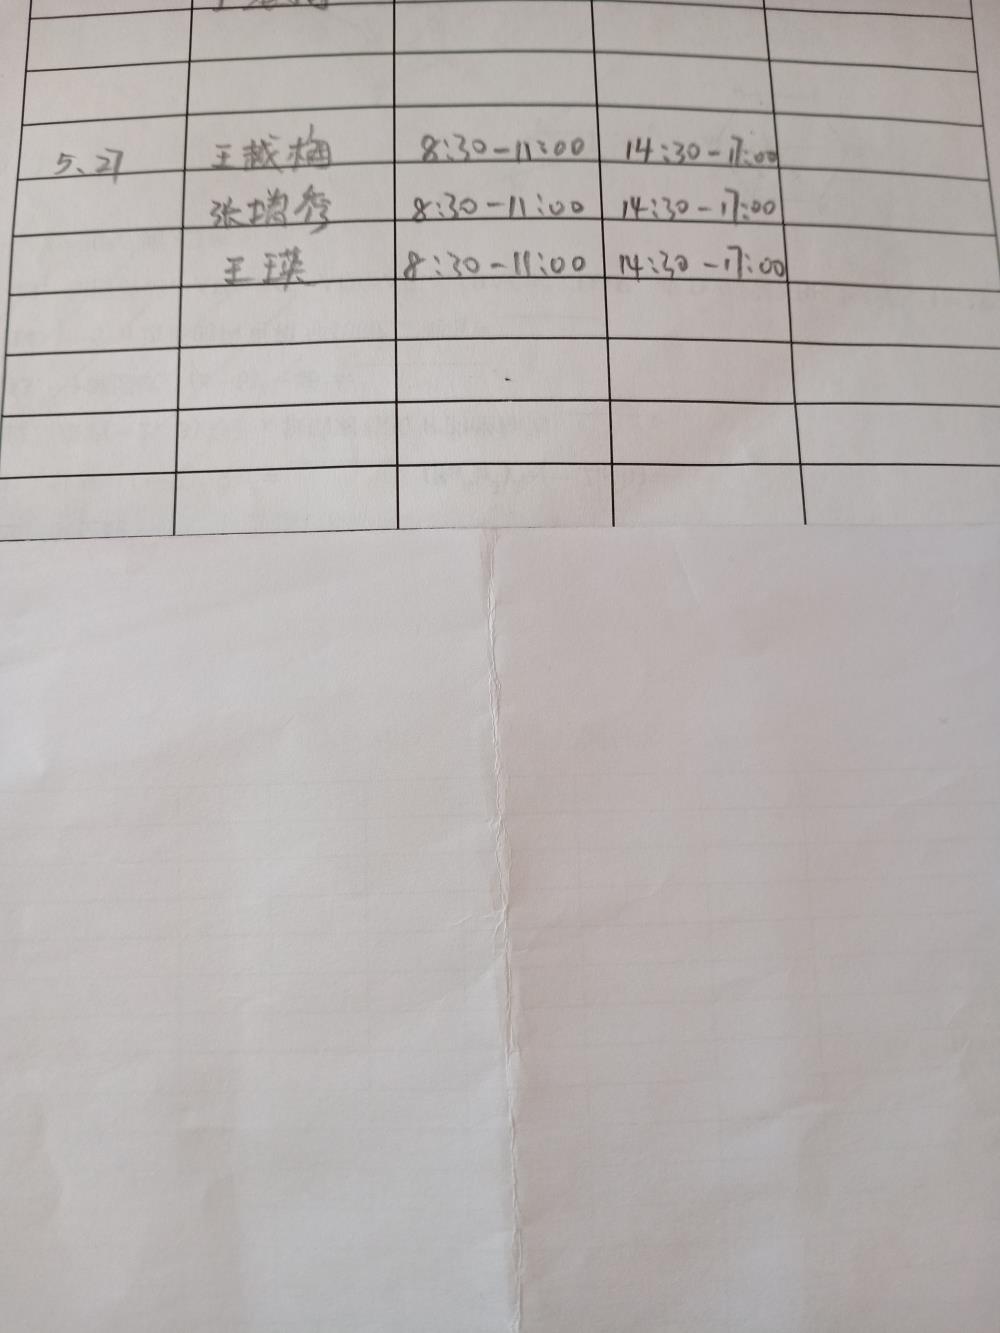 5、27 王越梅 8:30-11:00 14:30-17:00
张增秀 8:30-11:00 14:30-17:00
王瑛 8:30-11:00 14:30-17:00